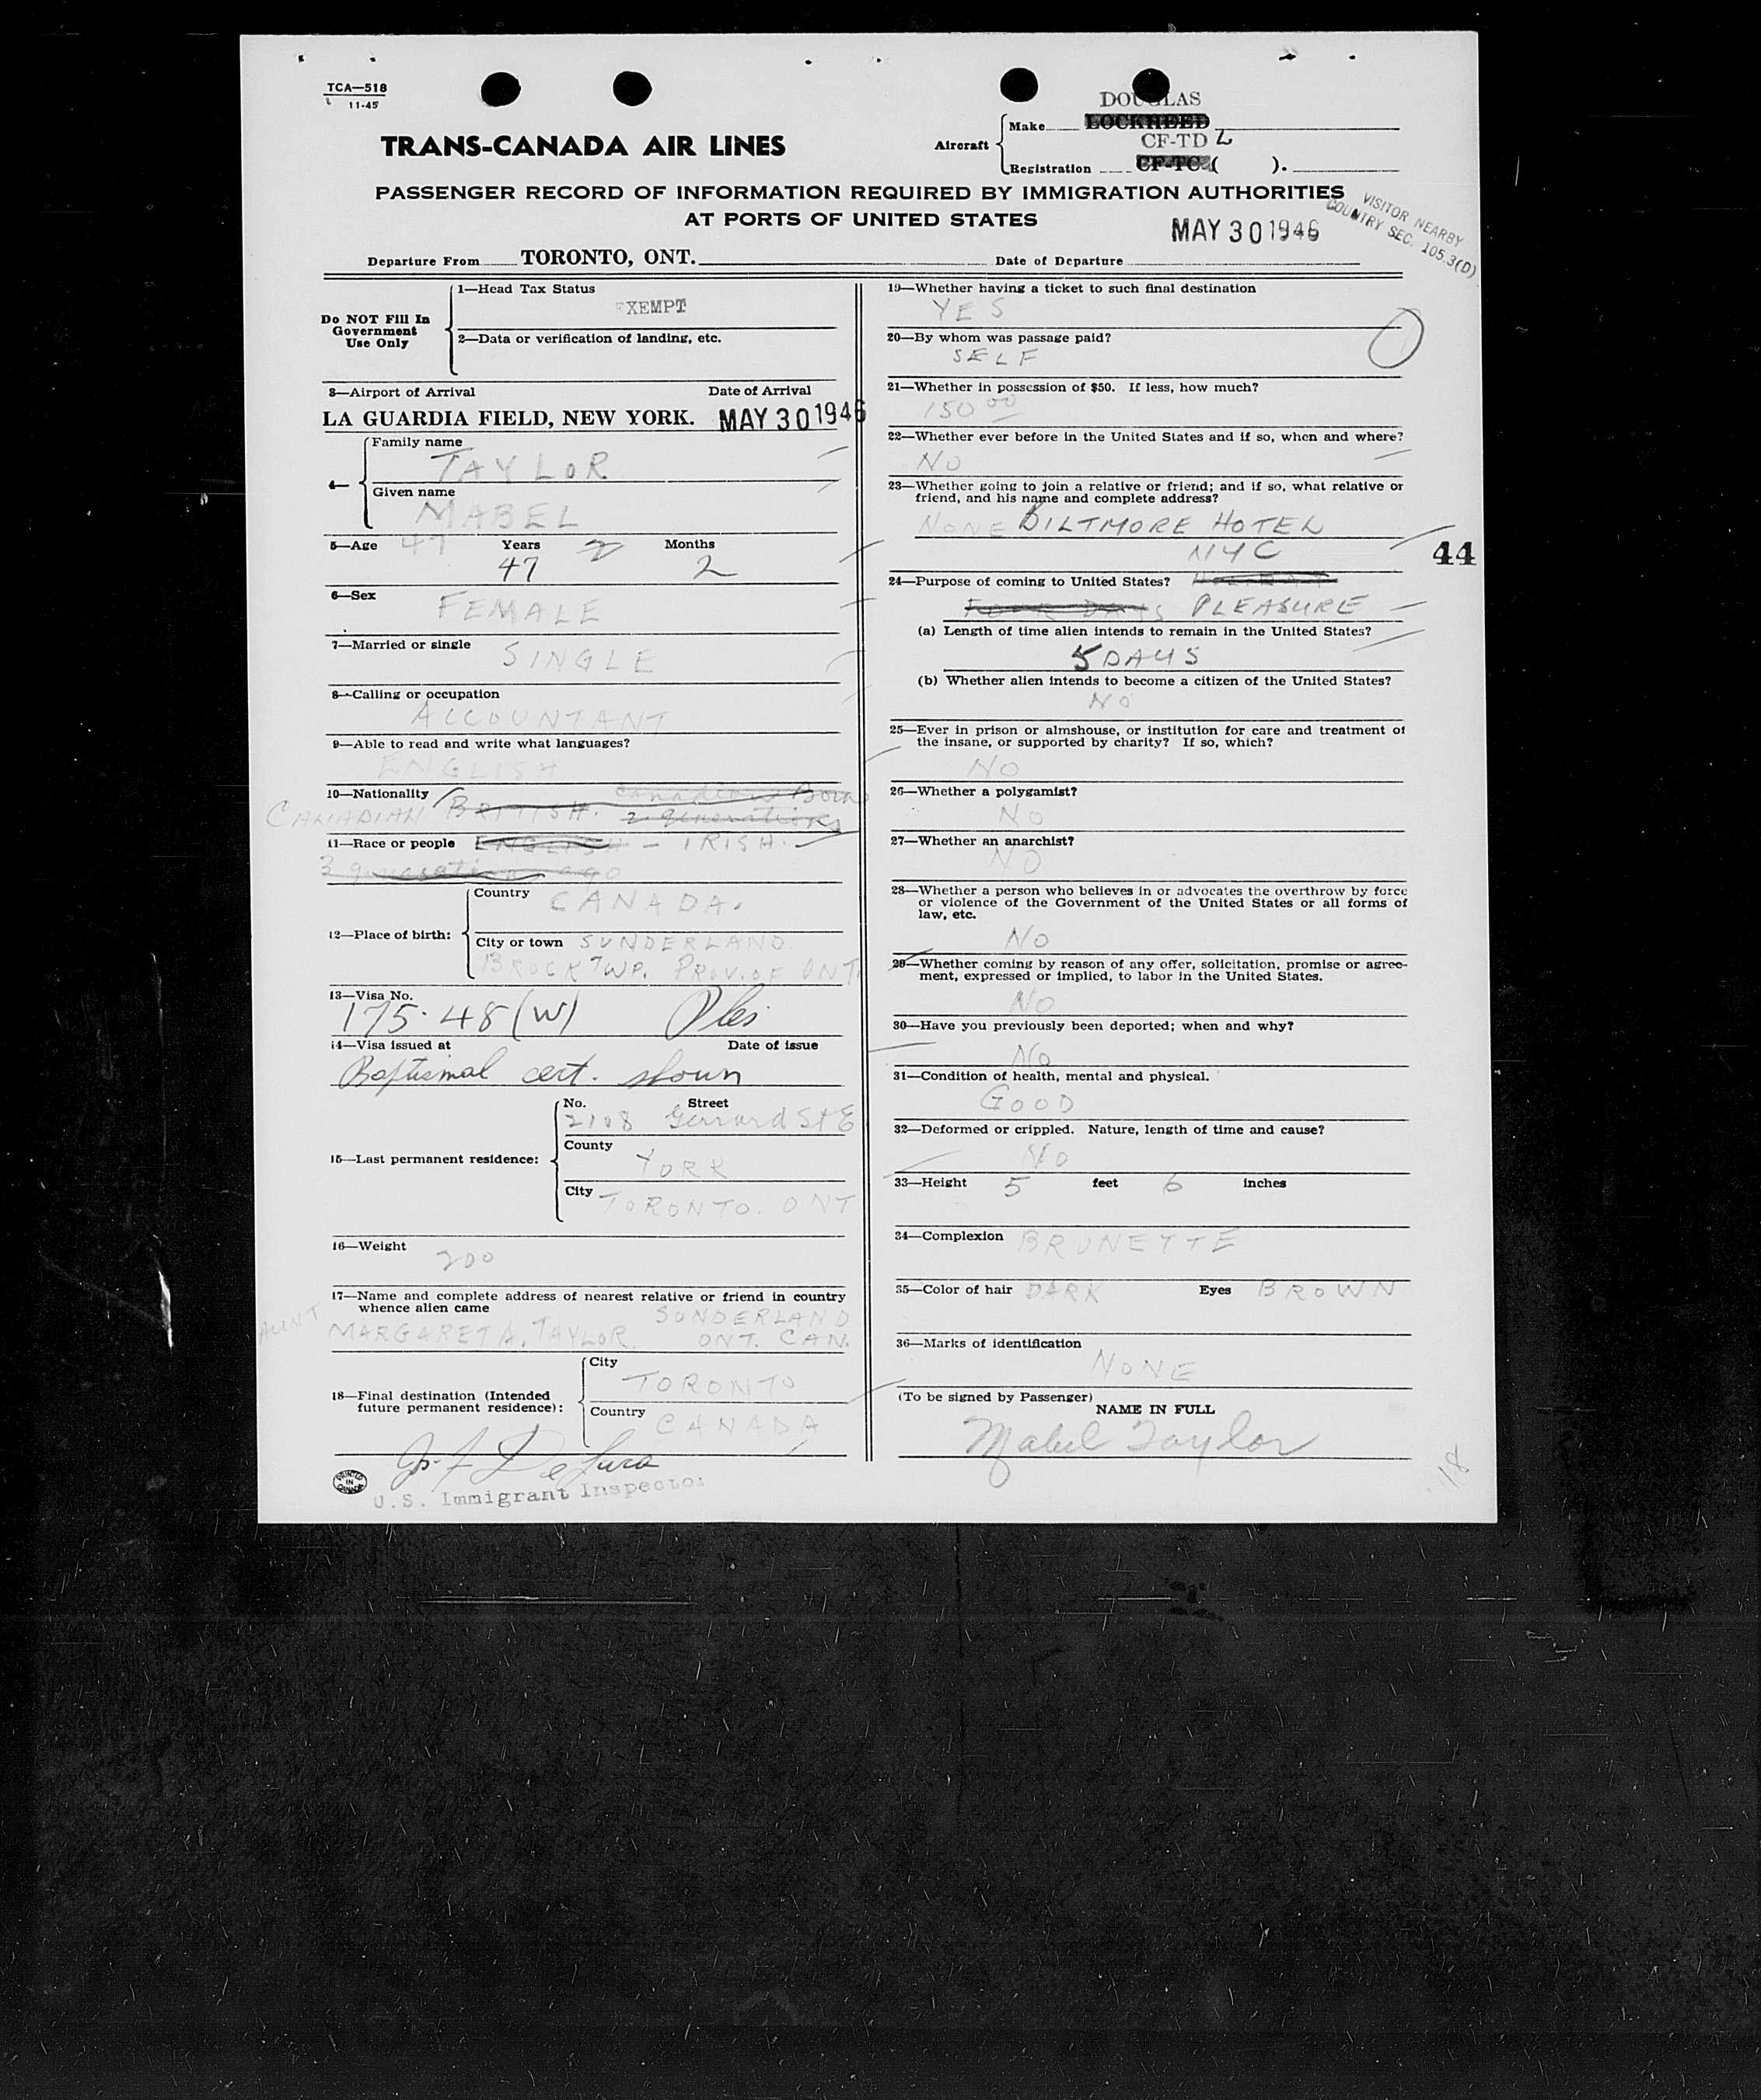 TCA—518
11-45
TRANS-CANADA AIR LINES
Aircraft
Make
DOUGLAS
LOCKHEED
CF-TD L
Registration CF-TC ( ).
PASSENGER RECORD OF INFORMATION REQUIRED BY IMMIGRATION AUTHORITIES
AT PORTS OF UNITED STATES
VISITOR NEARBY
COUNTRY SEC. 105.3(D)
MAY 30 1946
Departure From TORONTO, ONT. Date of Departure
Do NOT Fill In
Government
Use Only
1—Head Tax Status
EXEMPT
2—Data or verification of landing, etc.
3—Airport of Arrival Date of Arrival
LA GUARDIA FIELD, NEW YORK. MAY 30 1946
4—
Family name
TAYLOR
Given name
MABEL
5—Age 47 Years 2 Months
47 2
6—Sex
FEMALE
7—Married or single
SINGLE
8—Calling or occupation
ACCOUNTANT
9—Able to read and write what languages?
ENGLISH
10—Nationality Canadian Born
CANADIAN BRITISH. 2 generations
11—Race or people ENGLISH — IRISH.
3 generations ago
12—Place of birth:
Country
CANADA.
City or town SUNDERLAND
BROCK TWP. PROV. OF ONT.
13—Visa No.
175.48(W)
14—Visa issued at Date of issue
Baptismal cert. shown
15—Last permanent residence:
No. Street
2108 Gerrard St E
County
YORK
City
TORONTO. ONT
16—Weight
200
17—Name and complete address of nearest relative or friend in country
whence alien came
SUNDERLAND
AUNT MARGARET A. TAYLOR. ONT. CAN.
18—Final destination (Intended
future permanent residence):
City
TORONTO
Country
CANADA
U.S. Immigrant Inspector
PRINTED
IN
CANADA
19—Whether having a ticket to such final destination
YES
20—By whom was passage paid?
SELF
21—Whether in possession of $50. If less, how much?
150 00
22—Whether ever before in the United States and if so, when and where?
NO
23—Whether going to join a relative or friend; and if so, what relative or
friend, and his name and complete address?
NONE BILTMORE HOTEL
NYC
44
24—Purpose of coming to United States?
PLEASURE
(a) Length of time alien intends to remain in the United States?
5 DAYS
(b) Whether alien intends to become a citizen of the United States?
NO
25—Ever in prison or almshouse, or institution for care and treatment of
the insane, or supported by charity? If so, which?
NO
26—Whether a polygamist?
NO
27—Whether an anarchist?
NO
28—Whether a person who believes in or advocates the overthrow by force
or violence of the Government of the United States or all forms of
law, etc.
NO
29—Whether coming by reason of any offer, solicitation, promise or agree-
ment, expressed or implied, to labor in the United States.
NO
30—Have you previously been deported; when and why?
NO
31—Condition of health, mental and physical.
GOOD
32—Deformed or crippled. Nature, length of time and cause?
NO
33—Height 5 feet 6 inches
34—Complexion BRUNETTE
35—Color of hair DARK Eyes BROWN
36—Marks of identification
NONE
(To be signed by Passenger)
NAME IN FULL
Mabel Taylor
18